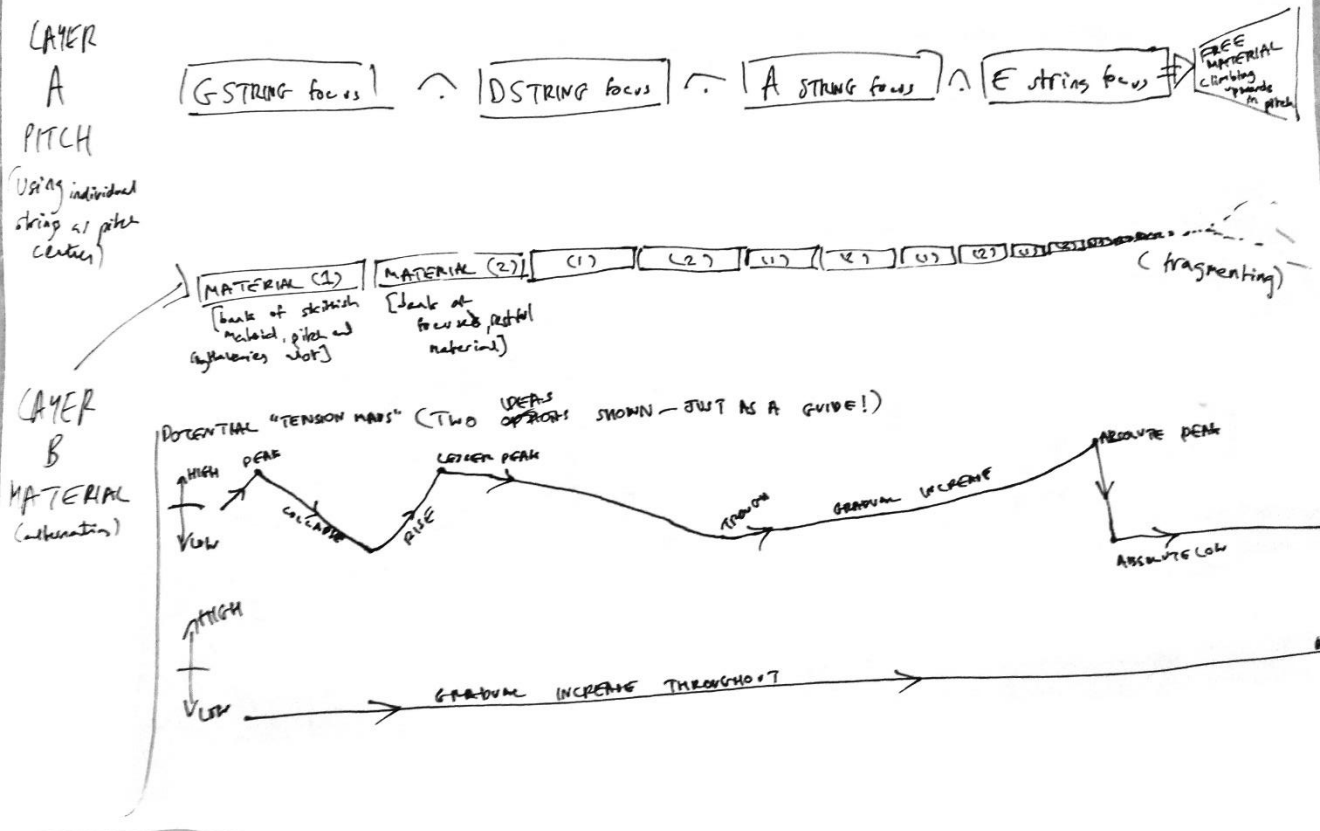 LAYER
A
PITCH
(Using individual
string as pitch
centres)
G STRING focus
D STRING focus
A STRING focus
E string focus
FREE
MATERIAL
climbing
upwards
in
pitch
MATERIAL (1)
MATERIAL (2)
(1)
(2)
(1)
(2)
(1)
(2)
(1)
(fragmenting)
[bank of skittish
material, pitch and
[bank of
focused, restful
material]
LAYER
B
MATERIAL
(alternating)
POTENTIAL "TENSION MAPS" (TWO IDEAS SHOWN - JUST AS A GUIDE!)
HIGH
LOW
PEAK
COLLAPSE
RISE
LESSER PEAK
TROUGH
GRADUAL INCREASE
ABSOLUTE PEAK
ABSOLUTE LOW
HIGH
LOW
GRADUAL INCREASE THROUGHOUT